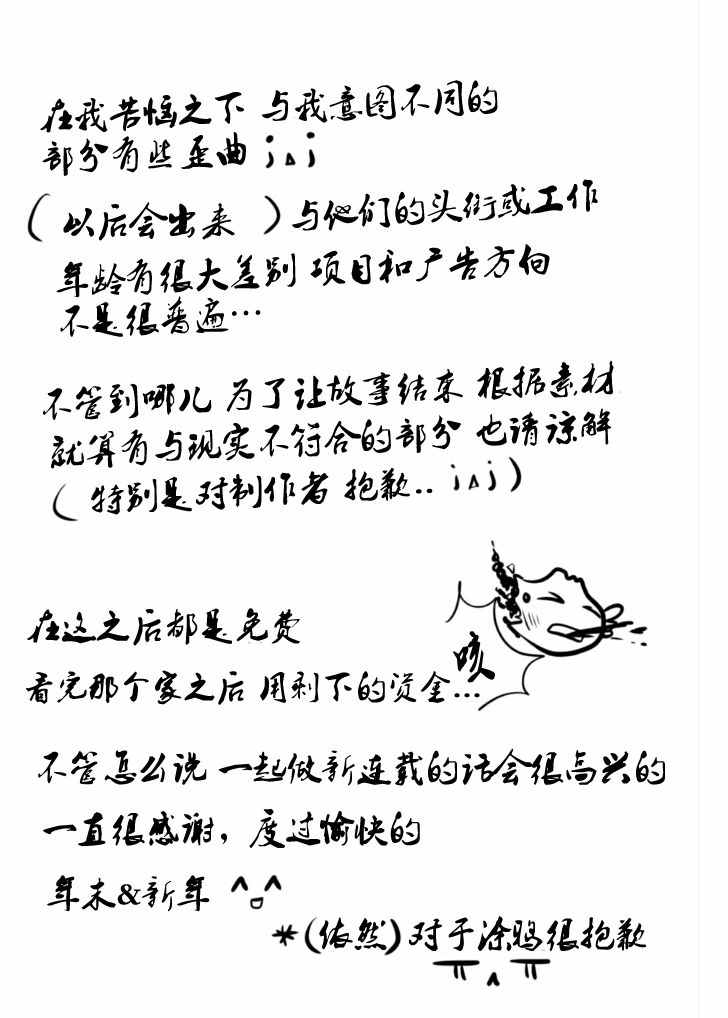 在我苦恼之下 与我意图不同的
部分有些歪曲 ;△;
(以后会出来 )与他们的头衔或工作
年龄有很大差别 项目和广告方向
不是很普遍…
不管到哪儿 为了让故事结束 根据素材
就算有与现实不符合的部分 也请谅解
(特别是对制作者 抱歉.. ;△;)
在这之后都是免费
咳
看完那个家之后 用剩下的资金...
不管怎么说 一起做新连载的话会很高兴的
一直很感谢，度过愉快的
年末&新年 ^ㅁ^
*(依然)对于涂鸦很抱歉
ㅠㅅㅠ